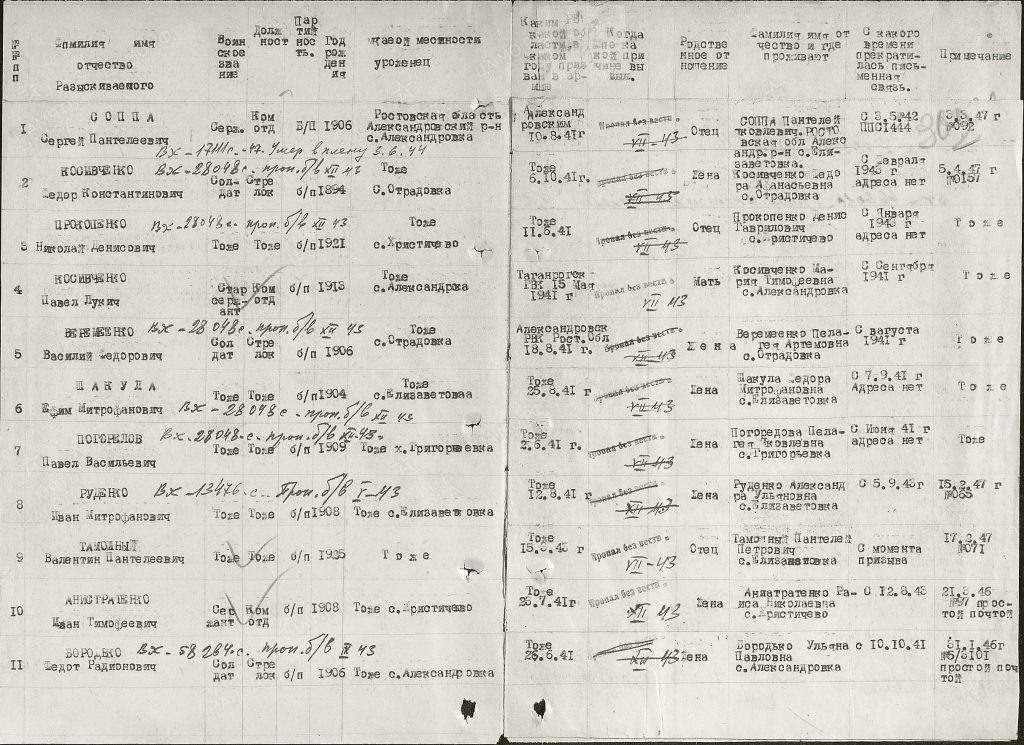 №№ п п
Фамилия имя отчество Разыскиваемого
Воин ское зва ние
Долж ност
Пар тий нос ть.
Год рож ден ия
какой местности уроженец
Когда
Родстве нное от ношение
Фамилия имя от чество и где проживают
С какого времени прекрати- лась пись- менная связь.
Примечание
1 СОППА Сергей Пантелеевич Серж. Ком отд Б/П 1906 Ростовская область Александровский р-н с.Александровка
Александ ровским 10.8.41г Пропал без вести VII-43 Отец СОППА Пантелей Яковлевич. РОСТО вская обл Алекс андр. р-н с.Ели- заветовка. С 3.5.42 ППС1444 3.3.47 г №092
Умер в плену 3.6.44
2 КОСИВЧЕНКО Вх-28048с. проп. б/в XII 43 Федор Константинович Сол- дат Стре лок б/п 1894 Тоже с.Отрадовка
Тоже 6.10.41г. Пропал без вести VII-43 Жена Косивченко Федо ра Афанасьевна с.Отрадовка С февраля 1943 г адреса нет 5.4.47 г №0157
3 ПРОКОПЕНКО Вх-28048с. проп. б/в XII 43 Николай Денисович Тоже Тоже б/п 1921 Тоже с.Христичево
Тоже 11.6.41 Пропал без вести VII-43 Отец Прокопенко Денис Гаврилович с.Христичево С Января 1943 г адреса нет Тоже
4 КОСИВЧЕНКО Павел Лукич Стар серж- ант Ком отд б/п 1913 Тоже с.Александровка
Таганрогск РВК 15 Мая 1941 г Пропал без вести VII 43 Мать Косивченко Ма- рия Тимофеевна с.Александровка С Сентября 1941 г Тоже
5 ВЕРЕМЕЕНКО Вх-28048с. проп. б/в XII 43 Василий Федорович Сол дат Стре лок б/п 1906 Тоже с.Отрадовка
Александровск РВК Рост.Обл 18.8.41г. Пропал без вести VII-43 Жена Веремеенко Пела- гея Артемовна с.Отрадовка С августа 1941 г Тоже
6 ШАКУЛА Ефим Митрофанович Вх-28048с - проп. б/в XII 43 Тоже Тоже б/п 1904 Тоже с.Елизаветоваа
Тоже 25.8.41 г Пропал без вести VII-43 Жена Шакула Федора Митрофановна с.Елизаветовка С 7.9.41 г Адреса нет Тоже
7 ПОГОРЕЛОВ Вх-28048-с-проп. б/в XII-43 Павел Васильевич Тоже Тоже б/п 1909 Тоже х.Григорьевка
Тоже 2.6.41 г. Пропал без вести VII 43 Жена Погоредова Пела- гея Яковлевна с.Григорьевка С Июня 41 г адреса нет Тоже
8 РУДЕНКО Вх-13476-с-Проп. б/в V-43 Иван Митрофанович Тоже Тоже б/п 1908 Тоже с.Елизаветовка
Тоже 12.8.41 г Пропал без вести XII 43 Жена Руденко Александ ра Ульяновна с.Елизаветовка С 5.9.43г 15.2.47 г №065
9 ТАМОЖНЫЙ Валентин Пантелеевич Тоже Тоже б/п 1925 Тоже
Тоже Пропал без вести VII-43 Отец Таможный Пантелей Петрович с.Елизаветовка С момента призыва 17.2.47 №071
10 АНИСТРАТЕНКО Иван Тимофеевич Сес жант Ком отд б/п 1908 Тоже с.Христичево
Тоже Пропал без вести XII 43 Жена Аниатратенко Ра- иса Николаевна с.Христичево С 12.8.43 №97 прос- той почтой
11 БОРОДЬКО Вх-58284с. проп. б/в 43 Федот Радионович Сол дат Стре лок б/п 1906 Тоже с.Александровка
Тоже 26.6.41 XII 43 Жена Бородько Ульяна Павловна с.Александровка с 10.10.41 31.1.46г №5/3101 простой поч той